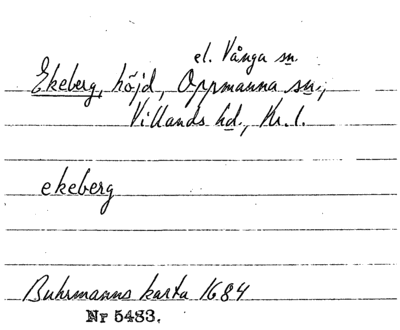 el. Vånga sn.
Ekeberg, höjd, Oppmanna sn.,
Villands hd., Kr. l.
ekeberg
Buhrmanns karta 1684
Nr 5483.